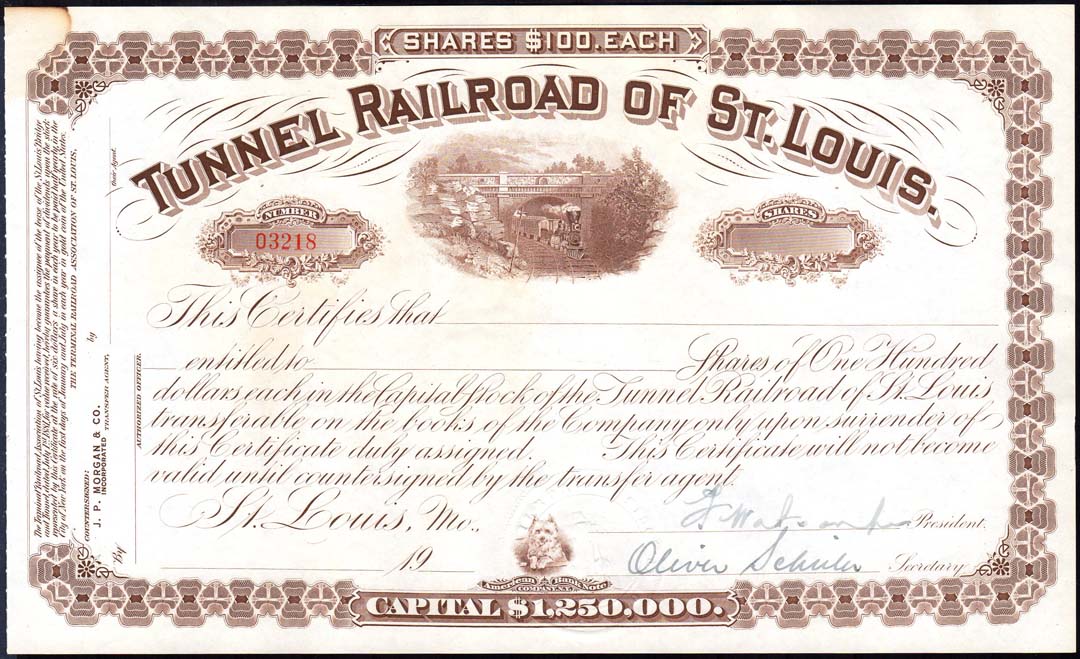 SHARES $100. EACH
TUNNEL RAILROAD OF ST. LOUIS.
NUMBER
03218
SHARES
This Certifies that
entitled to Shares of One Hundred
dollars each in the Capital Stock of the Tunnel Railroad of St. Louis
transferable on the books of the Company only upon surrender of
this Certificate duly assigned. This Certificate will not become
valid until countersigned by the transfer agent.
St. Louis, Mo.,
President.
19
Oliver Secretary.
American Bank Note
COMPANY.
CAPITAL $1,250,000.
The Terminal Railroad Association of St. Louis having become the assignee of the lease of the St. Louis Bridge
and Tunnel, dated July 1st 1881, for value received, hereby guarantees the payment of dividends upon the stock
represented by this Certificate at the rate of six dollars a share in each year to be paid half yearly in the
City of New York on the first days of January and July in each year in gold coin of the United States.
THE TERMINAL RAILROAD ASSOCIATION OF ST. LOUIS,
by their Agent.
COUNTERSIGNED:
J. P. MORGAN & CO.
INCORPORATED TRANSFER AGENT,
By AUTHORIZED OFFICER.